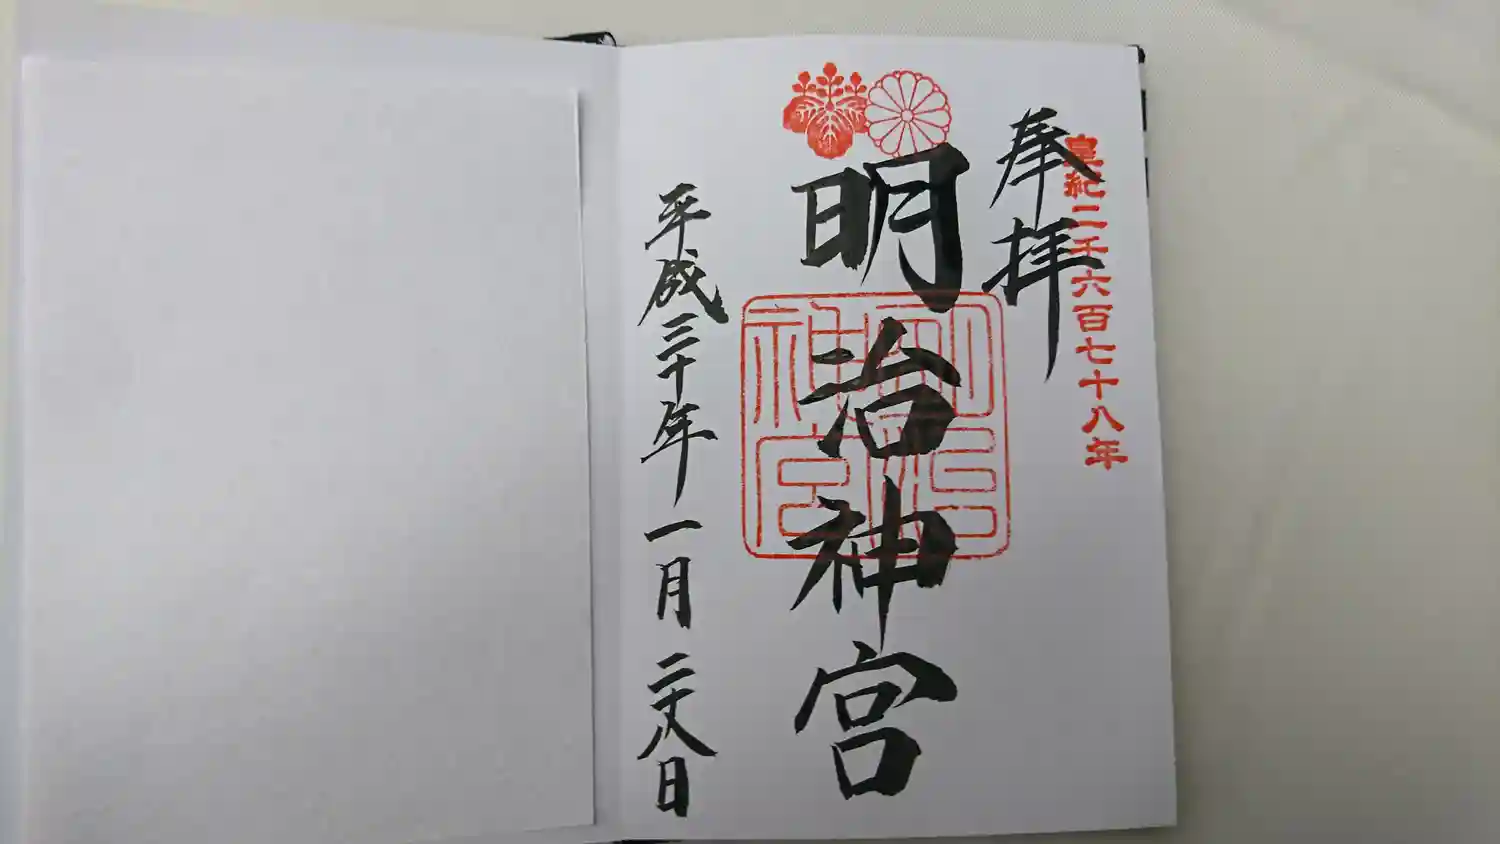 皇紀二千六百七十八年
奉拝
明治神宮
明治神宮
平成三十年一月二十八日